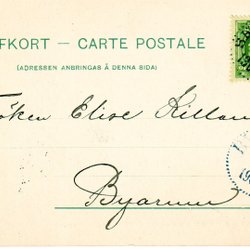 FKORT — CARTE POSTALE
(ADRESSEN ANBRINGAS Å DENNA SIDA)
öken Elise Killan
Byarum